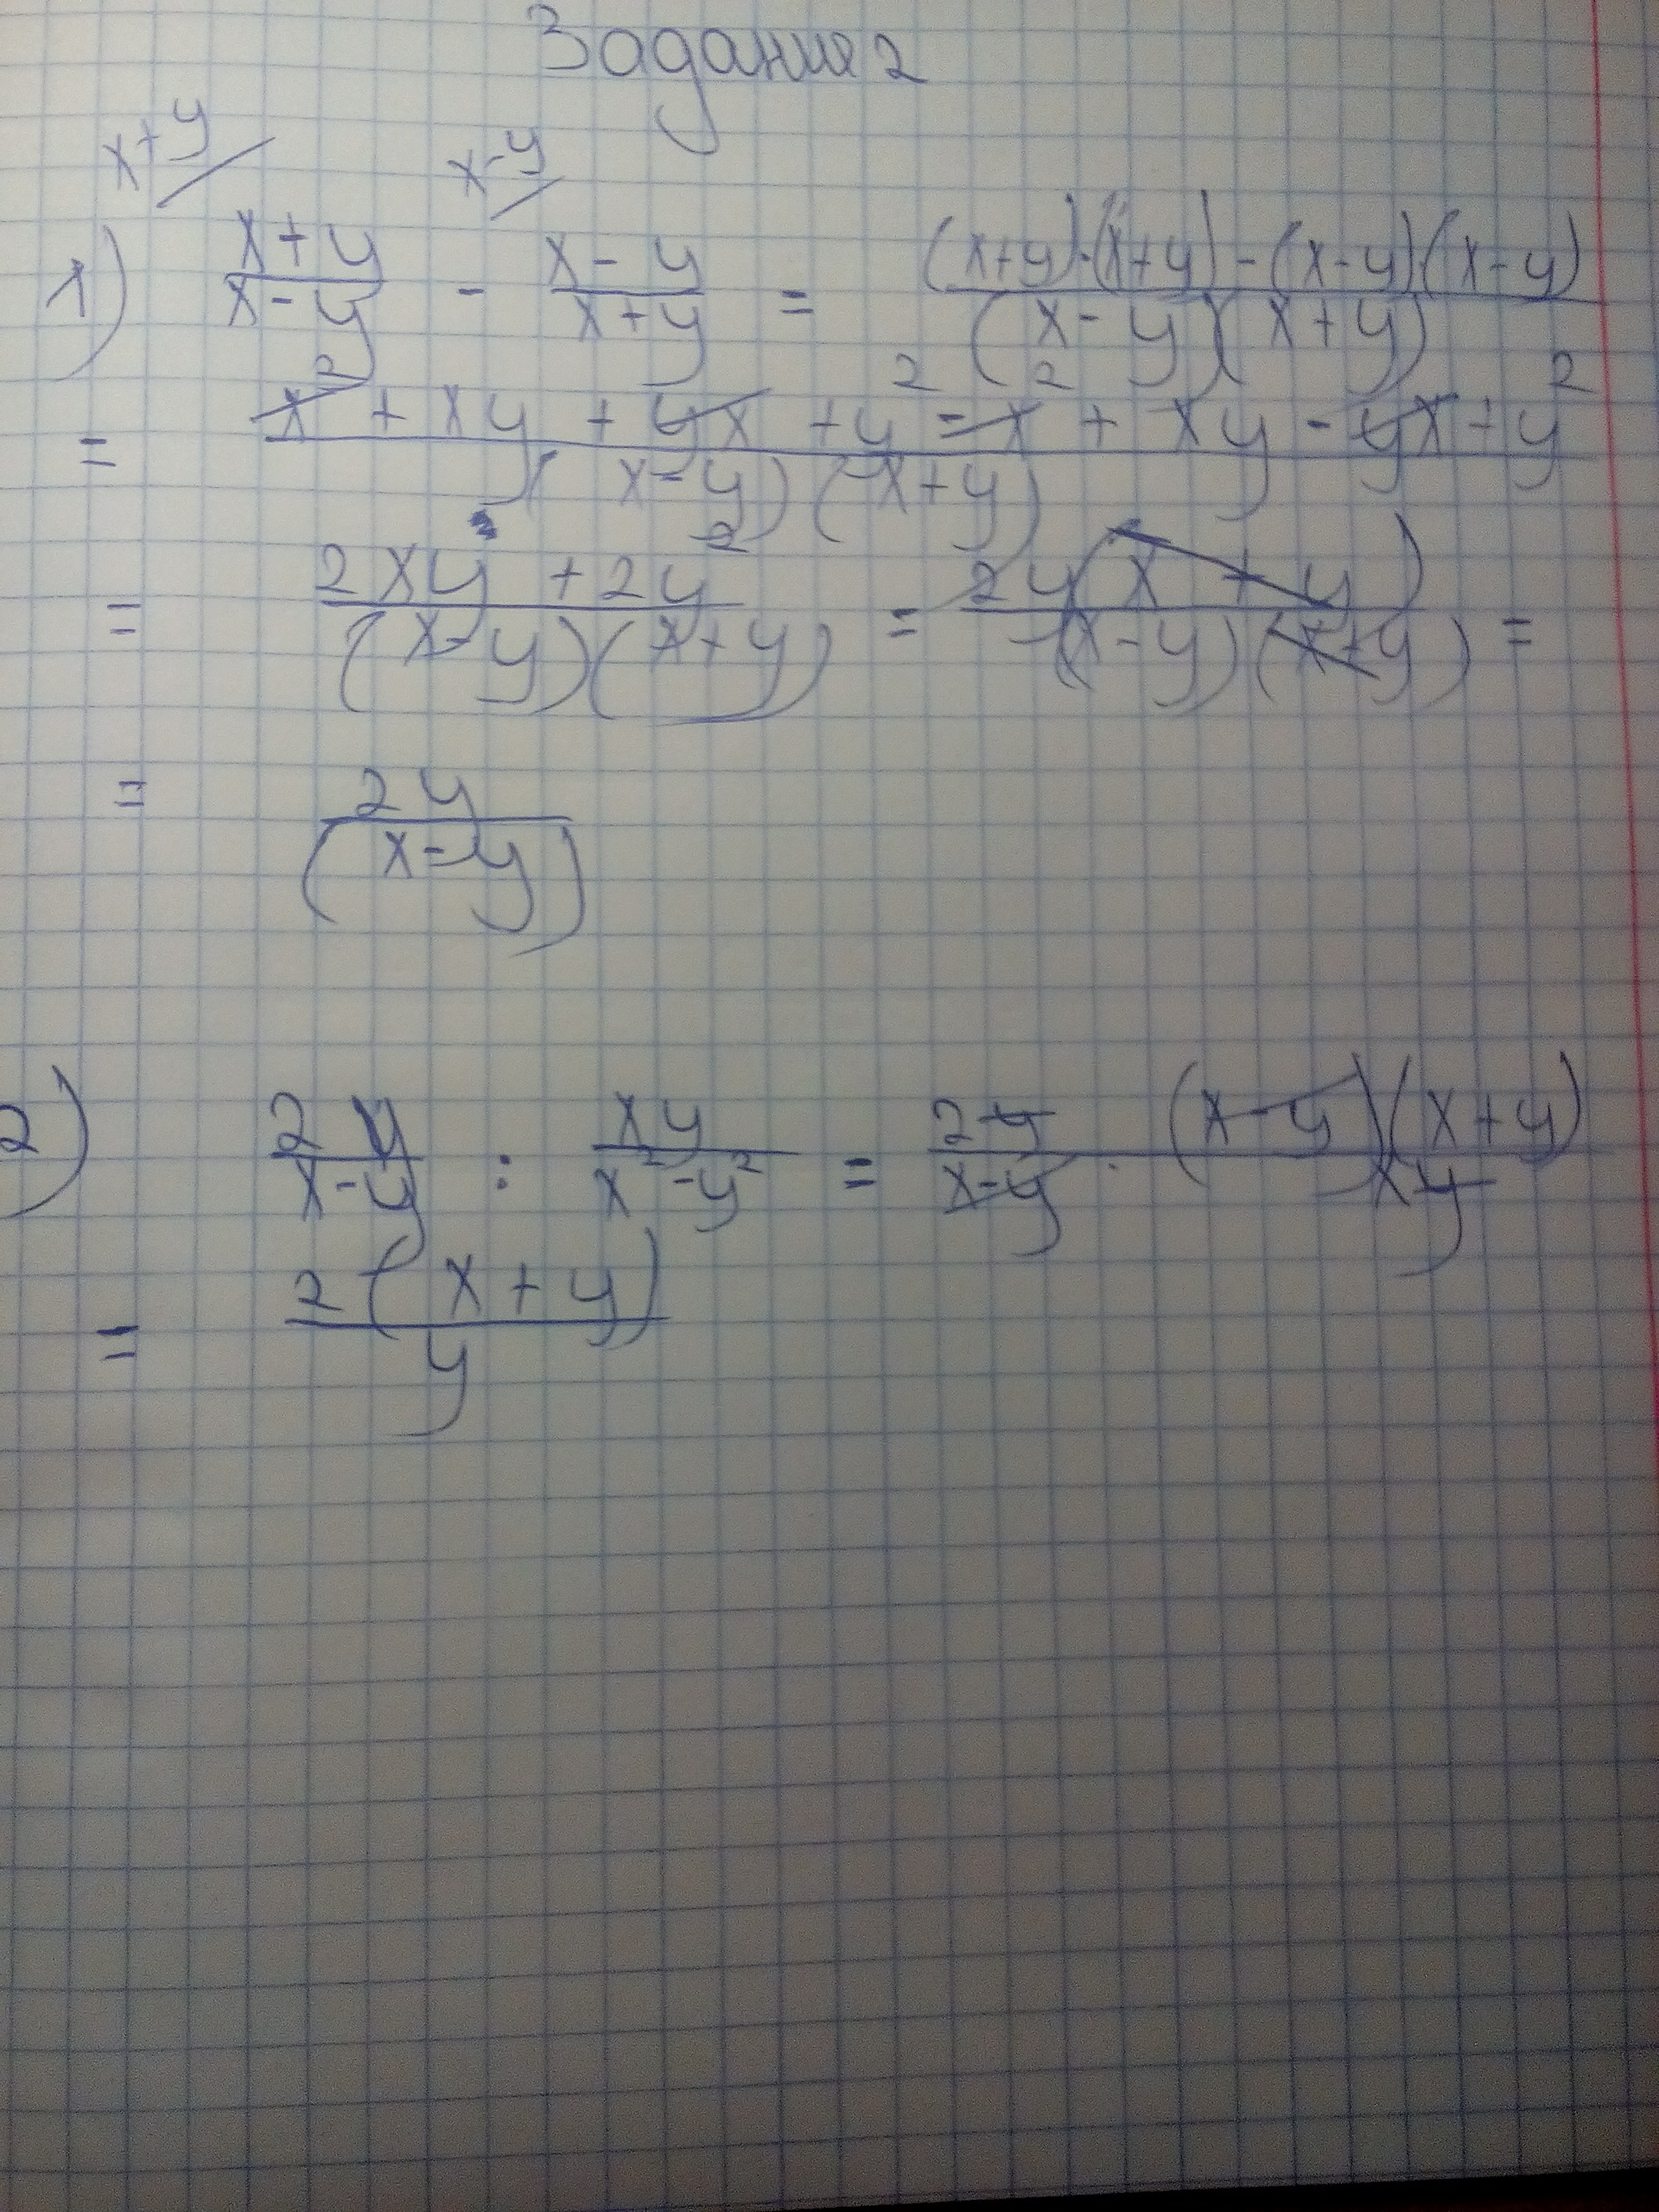 Задание 2
x+y/ x-y/
1) (x+y)/(x-y) - (x-y)/(x+y) = ((x+y)·(x+y)-(x-y)(x-y))/((x-y)(x+y))
= (x² + xy + yx + y² - x² + xy - yx + y²)/((x-y)(x+y))
= (2xy + 2y²)/((x-y)(x+y)) = (2y(x+y))/((x-y)(x+y)) =
= 2y/(x-y)
2) 2y/(x-y) : xy/(x²-y²) = 2y/(x-y) · ((x-y)(x+y))/(xy)
= (2(x+y))/y